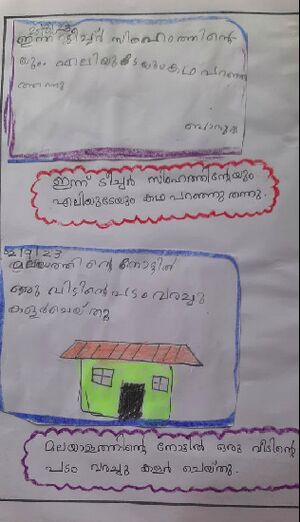 ഇന്ന് ടീച്ചർ സിംഹത്തിന്റെ
യും എലിയുടേയും കഥ പറഞ്ഞു
തന്നു
ഇന്ന് ടീച്ചർ സിംഹത്തിന്റേയും
എലിയുടേയും കഥ പറഞ്ഞു തന്നു.
2/9/23
ഒരു വീടിന്റെ പടം വരച്ചു
കളർ ചെയ്തു
മലയാളത്തിന്റെ നോട്ടിൽ ഒരു വീടിന്റെ
പടം വരച്ചു കളർ ചെയ്തു.